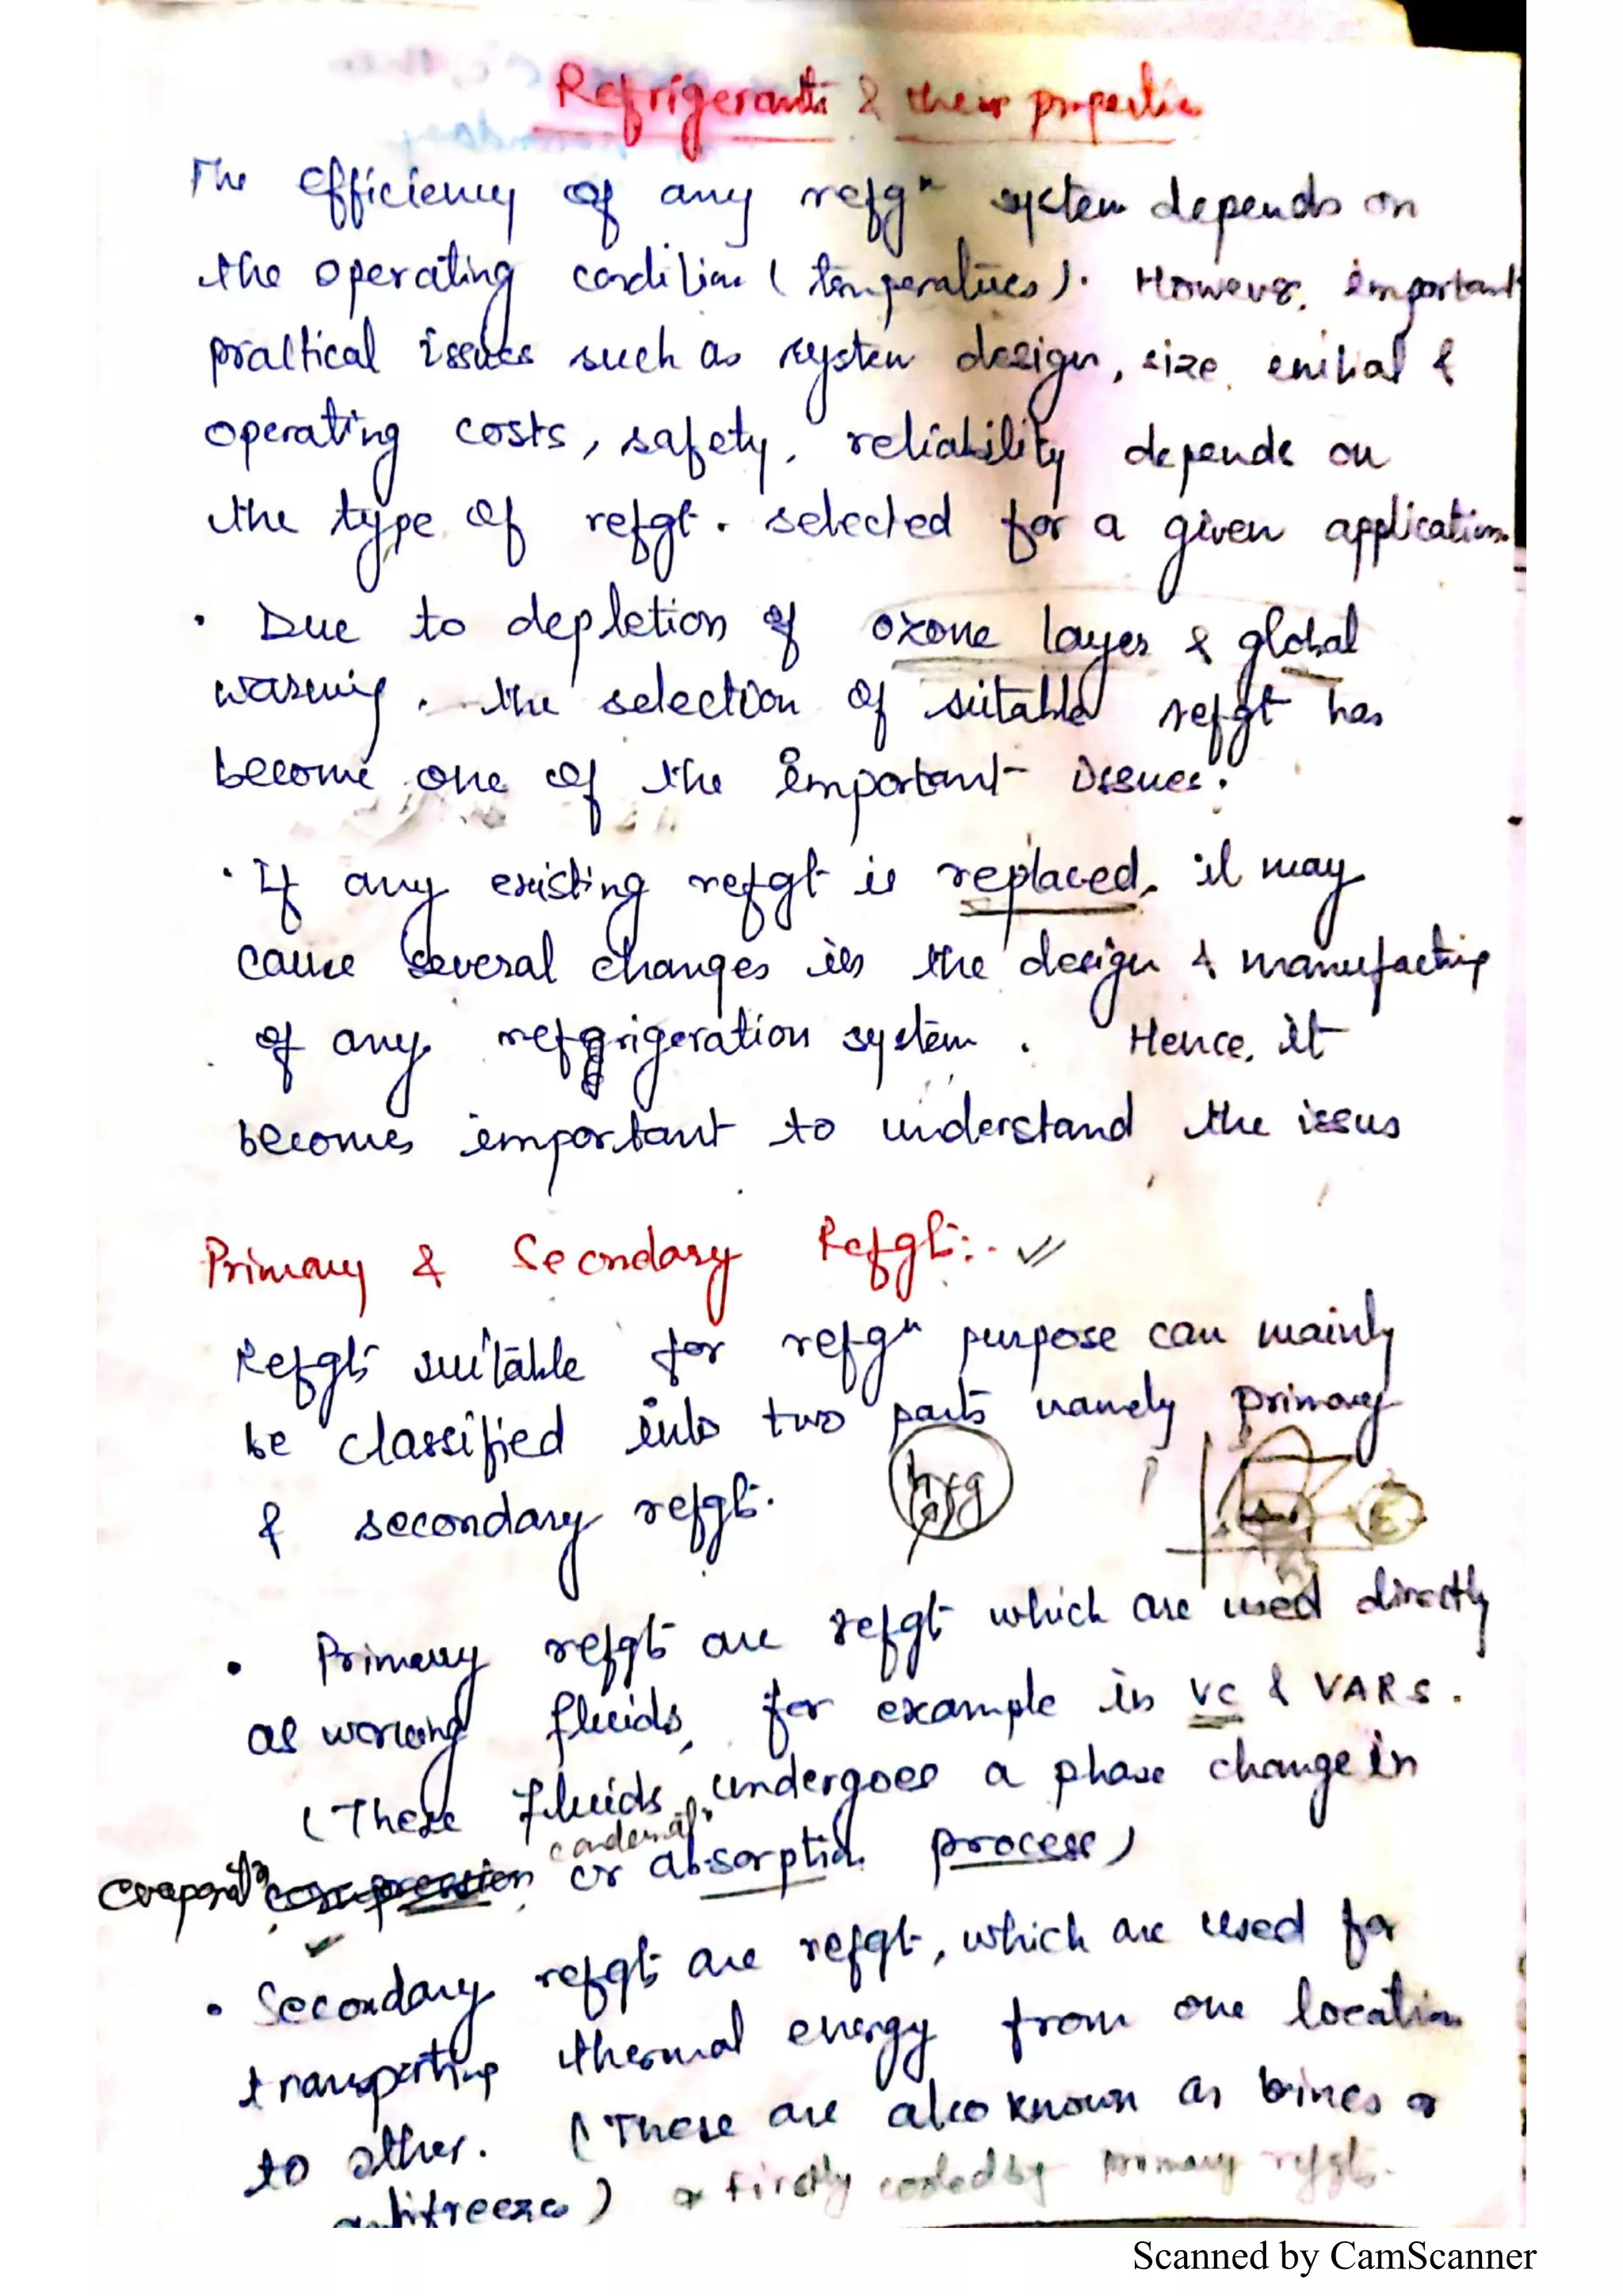 Refrigerants & their properties
The efficiency of any refgn system depends on
the operating condition (temperatures). However, important
practical issues such as system design, size, initial &
operating costs, safety, reliability depends on
the type of refgt. selected for a given application.
• Due to depletion of ozone layer & global
warming, the selection of suitable refgt has
become one of the important issues.
• If any existing refgt is replaced, it may
cause several changes in the design & manufacting
of any refgrigeration system. Hence, it
becomes important to understand the issus
Primary & Secondary Refgt:-
Refgt suitable for refgn purpose can mainly
be classified into two parts namely primary
& secondary refgt.
hfg
• Primary refgt are refgt which are used directly
as working fluids, for example in VC & VARS.
(These fluids undergoes a phase change in
condensatn
evaporatn compression or absorption process)
• Secondary refgt are refgt, which are used for
transporting thermal energy from one location
to other. (These are also known as brines or
antifreezes) firstly cooled by primary refgt.
Scanned by CamScanner